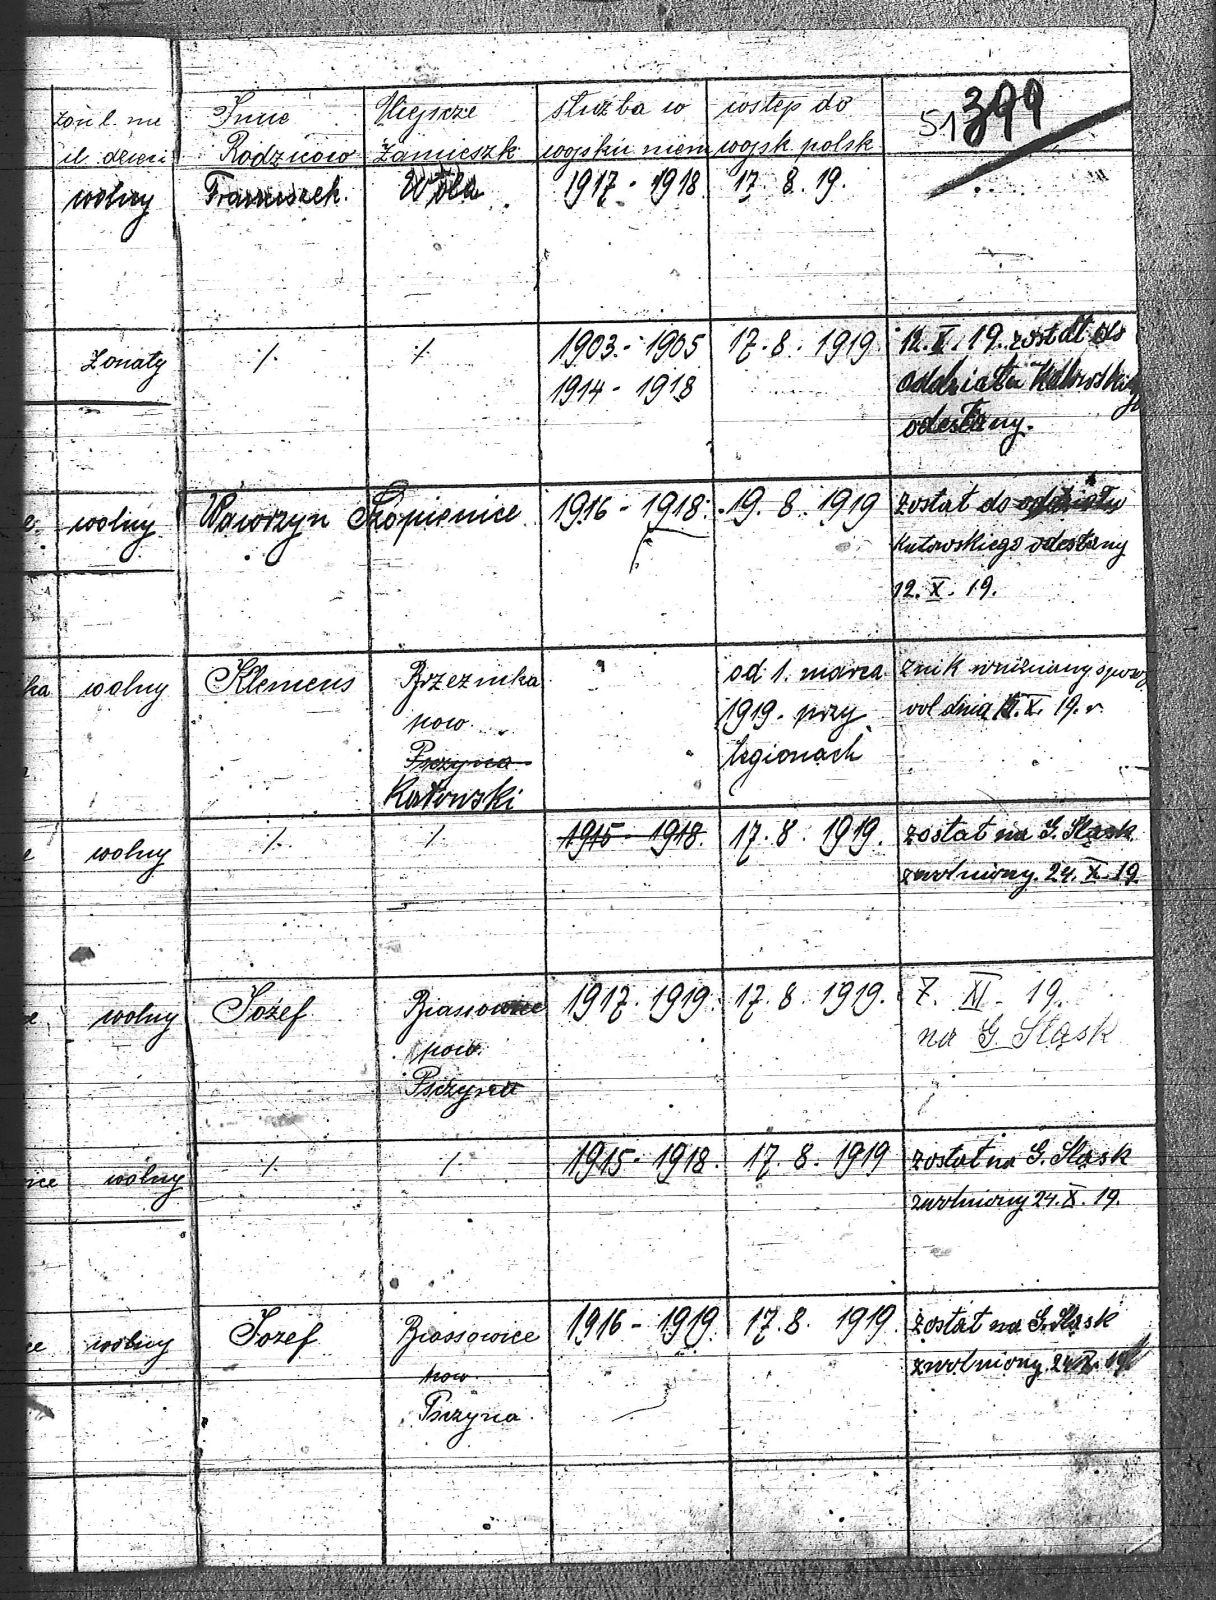 Imię Miejsce służba w wstęp do 51 399
il. dzieci Rodziców Zamieszk wojsku niem wojsk polsk
wolny Franciszek. Wola 1917 - 1918 17. 8. 19.
Żonaty ·/. ·/. 1903. - 1905 17. 8. 1919 12. X. 19. został do
1914 - 1918 oddziału
odesłany.
e. wolny Wawrzyn Szopienice 1916 - 1918. 19. 8. 1919 został do oddziału
Katowskiego odesłany
12. X. 19.
ka wolny Klemens Brzezinka od 1. marca znik
pow. 1919. przy dnia X. 19. r
Pszczyna legionach
Katowski
e wolny ·/. ·/. 1915 - 1918. 17. 8. 1919. został na G. Śląsk
zwolniony. 24. X. 19.
wolny Józef Biassowice 1917. 1919. 17. 8. 1919. 7. XI. 19.
pow. na G. Śląsk
Psczyna
ice wolny ·/. ·/. 1915 - 1918. 17. 8. 1919 został na G. Śląsk
zwolniony 24. X. 19.
ce wolny Jozef Biassowice 1916 - 1919 17. 8. 1919. został na G. Śląsk
pow. zwolniony. 24 X. 19
Psczyna